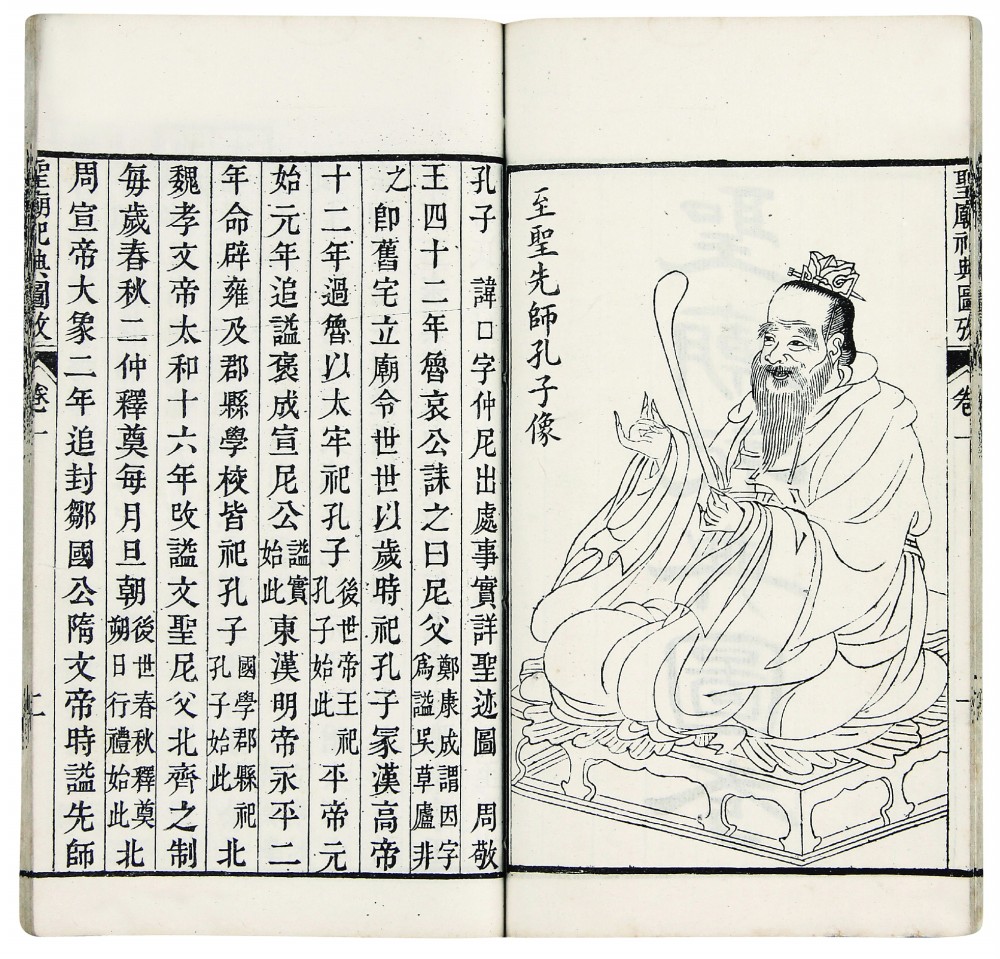 聖廟祀典圖攷　卷一　一
至聖先師孔子像
孔子　諱口字仲尼出處事實詳聖迹圖　周敬
王四十二年魯哀公誄之曰尼父鄭康成謂因字爲謚吳草廬非
之　即舊宅立廟令世世以歲時祀孔子冢漢高帝
十二年過魯以太牢祀孔子後世帝王祀孔子始此平帝元
始元年追謚褒成宣尼公謚實始此東漢明帝永平二
年命辟雍及郡縣學校皆祀孔子國學郡縣祀孔子始此北
魏孝文帝太和十六年改謚文聖尼父北齊之制
每歲春秋二仲釋奠每月旦朝後世春秋釋奠朔日行禮始此北
周宣帝大象二年追封鄒國公隋文帝時謚先師
聖廟祀典圖攷　卷一　二